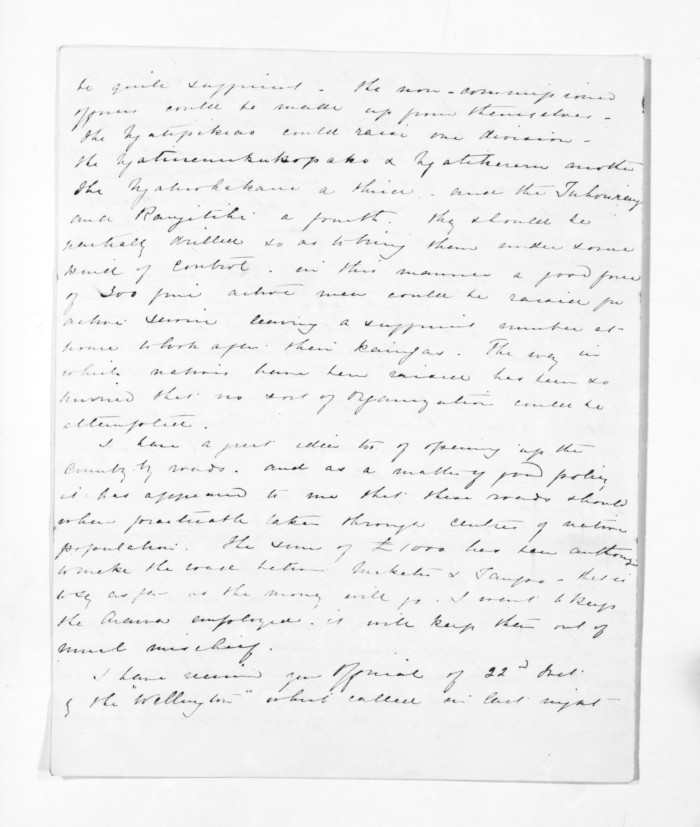 be quite sufficient - the non-commissioned
officers could be made up from themselves -
the Ngatipikiao could raise one division -
the & another
the a third - and the Tuhourangi
and Rangitihi a fourth. they should be
partially drilled so as to bring them under some
kind of control - in this manner a good force
of 300 fine active men could be raised for
active service leaving a sufficient number at
home to look after their kaingas. The way in
which natives have been raised has been so
hurried that no sort of organization could be
attempted.
I have a great idea too of opening up the
Country by roads. and as a matter of good policy
it has appeared to me that these roads should
when practicable taken through centres of native
population. The sum of £1000 has been authorized
to make the road between Maketu & - that is
to say as far as the money will go. I want to keep
the Arawa employed. it will keep them out of
much mischief.
I have received your Official of 22d Inst
by the "Wellington" which called in last night